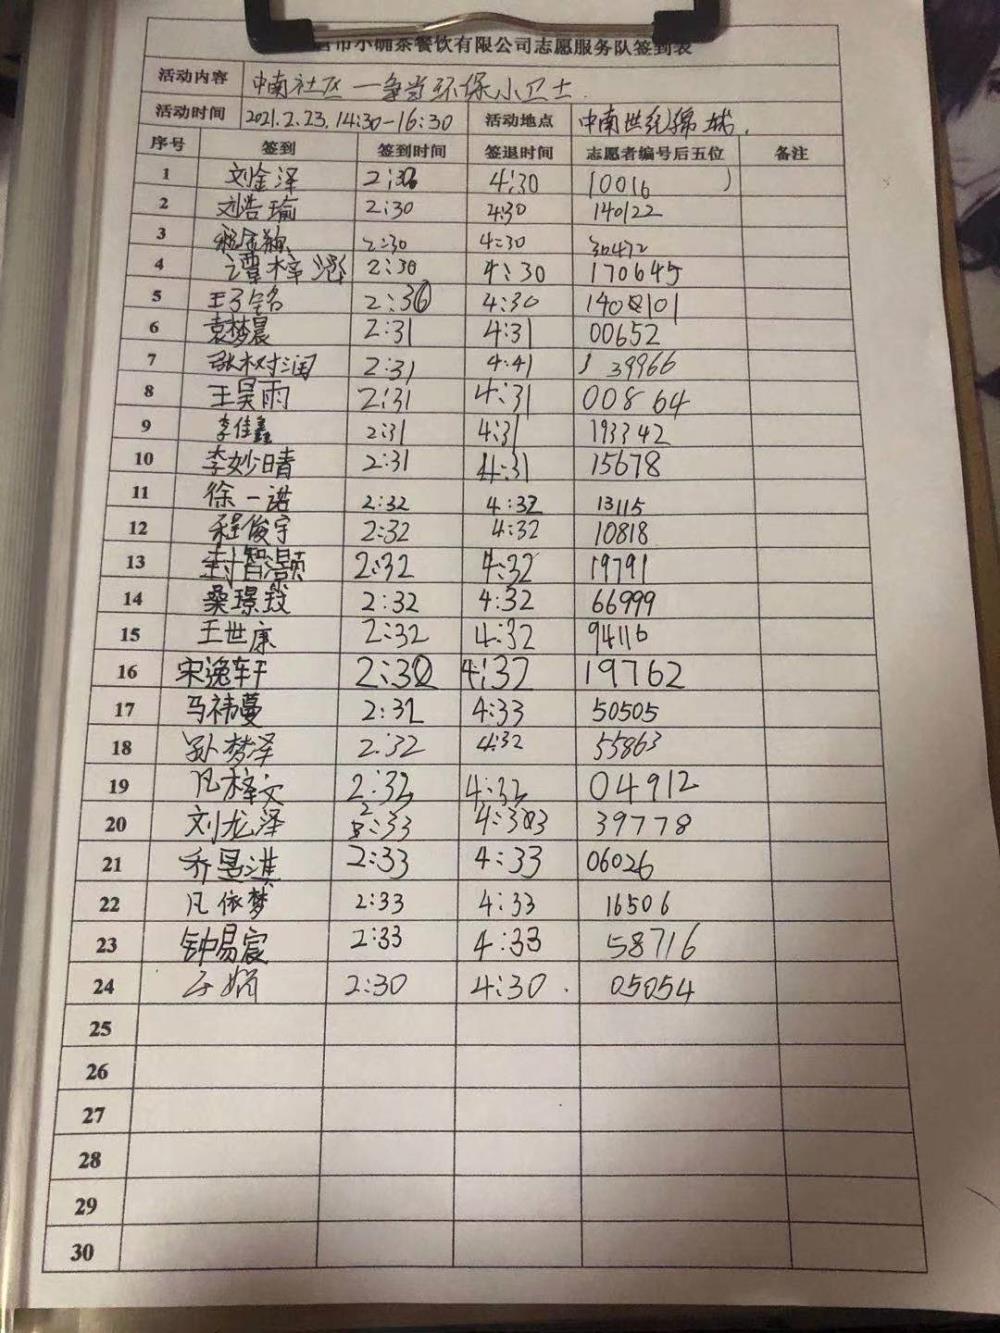 市小确茶餐饮有限公司志愿服务队签到表
活动内容 中南社区—争当环保小卫士.
活动时间 2021.2.23. 14:30-16:30 活动地点 中南世纪锦城.
序号 签到 签到时间 签退时间 志愿者编号后五位 备注
1 刘金泽 2:30 4:30 10016
2 刘浩瑜 2:30 4:30 140122
3 2:30 4:30 30472
4 谭梓 2:30 4:30 170645
5 王子铭 2:30 4:30 140 101
6 袁梦晨 2:31 4:31 00652
7 张树润 2:31 4:41 139966
8 王昊雨 2:31 4:31 00864
9 李佳鑫 2:31 4:31 193342
10 李妙晴 2:31 4:31 15678
11 徐一诺 2:32 4:32 13115
12 程俊宇 2:32 4:32 10818
13 封智灏 2:32 4:32 19791
14 桑璟 2:32 4:32 66999
15 王世康 2:32 4:32 94116
16 宋逸轩 2:32 4:32 19762
17 马祎蔓 2:32 4:33 50505
18 孙梦泽 2:32 4:32 55863
19 凡梓文 2:32 4:32 04912
20 刘龙泽 2:33 4:33 39778
21 乔昱淇 2:33 4:33 06026
22 凡依梦 2:33 4:33 16506
23 钟易宸 2:33 4:33 58716
24 2:30 4:30. 05054
25
26
27
28
29
30